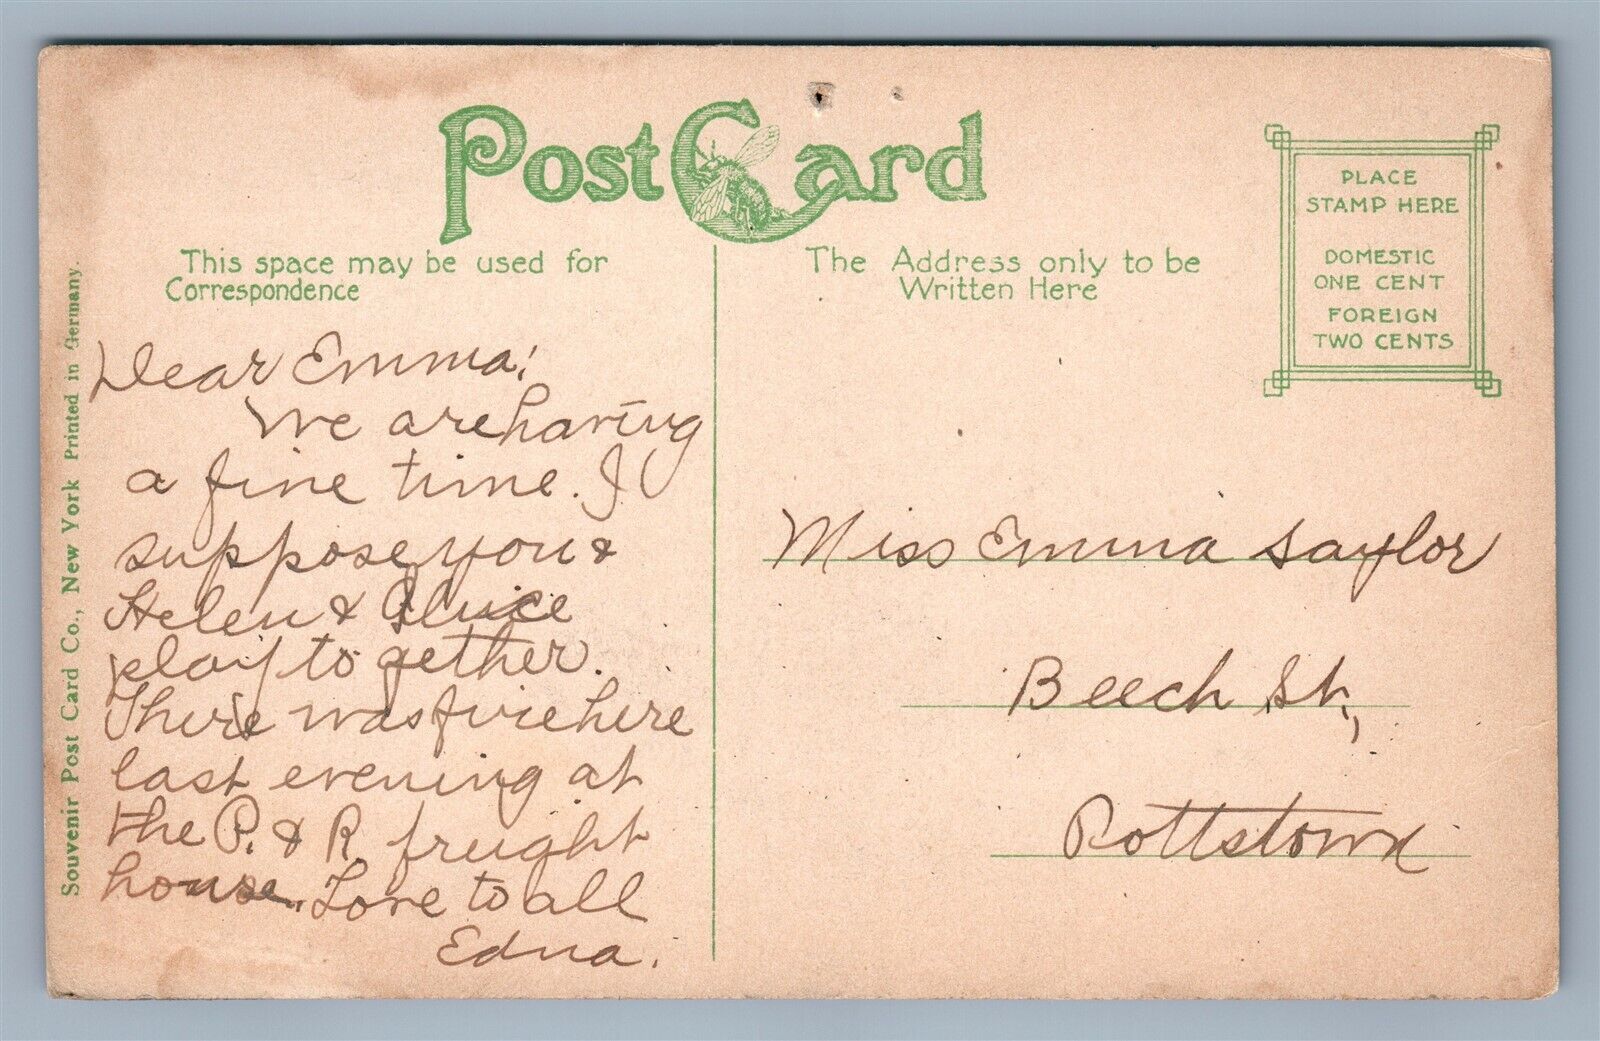 Post Card
This space may be used for
Correspondence
The Address only to be
Written Here
PLACE
STAMP HERE
DOMESTIC
ONE CENT
FOREIGN
TWO CENTS
Souvenir Post Card Co., New York Printed in Germany.
Dear Emma:
We are having
a fine time. I
suppose you &
Helen & Alice
play together.
There was fire here
last evening at
the P. & R freight
house. Love to all
Edna.
Miss Emma Saylor
Beech St.,
Pottstown